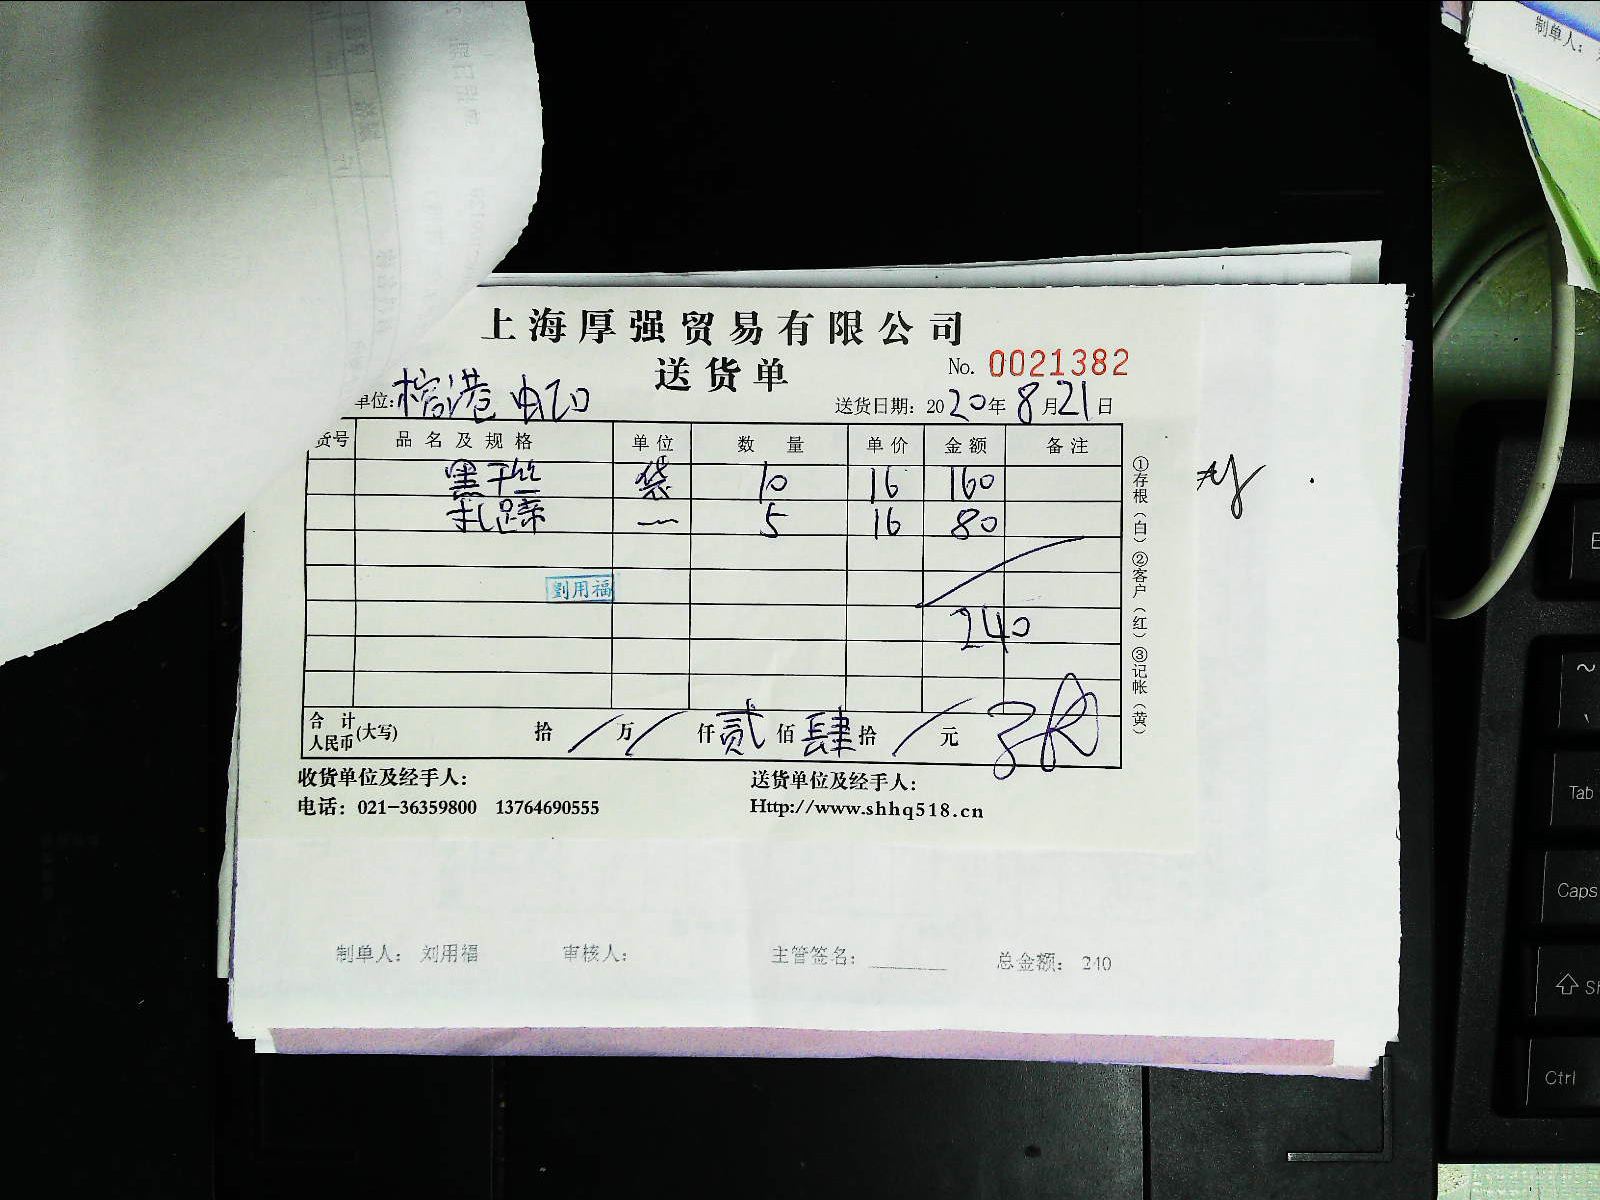 制单人：
上海厚强贸易有限公司
送货单
No. 0021382
单位：榕港
送货日期：2020年8月21日
货号 品名及规格 单位 数量 单价 金额 备注
黑干丝 袋 10 16 160
扎蹄 〃 5 16 80
劉用福
240
合计人民币(大写) 拾 / 万 / 仟 贰 佰 肆 拾 / 元
①存根（白）②客户（红）③记帐（黄）
收货单位及经手人： 送货单位及经手人：
电话：021-36359800 13764690555 Http://www.shhq518.cn
制单人： 刘用福 审核人： 主管签名： 总金额： 240
Tab
Caps
Ctrl